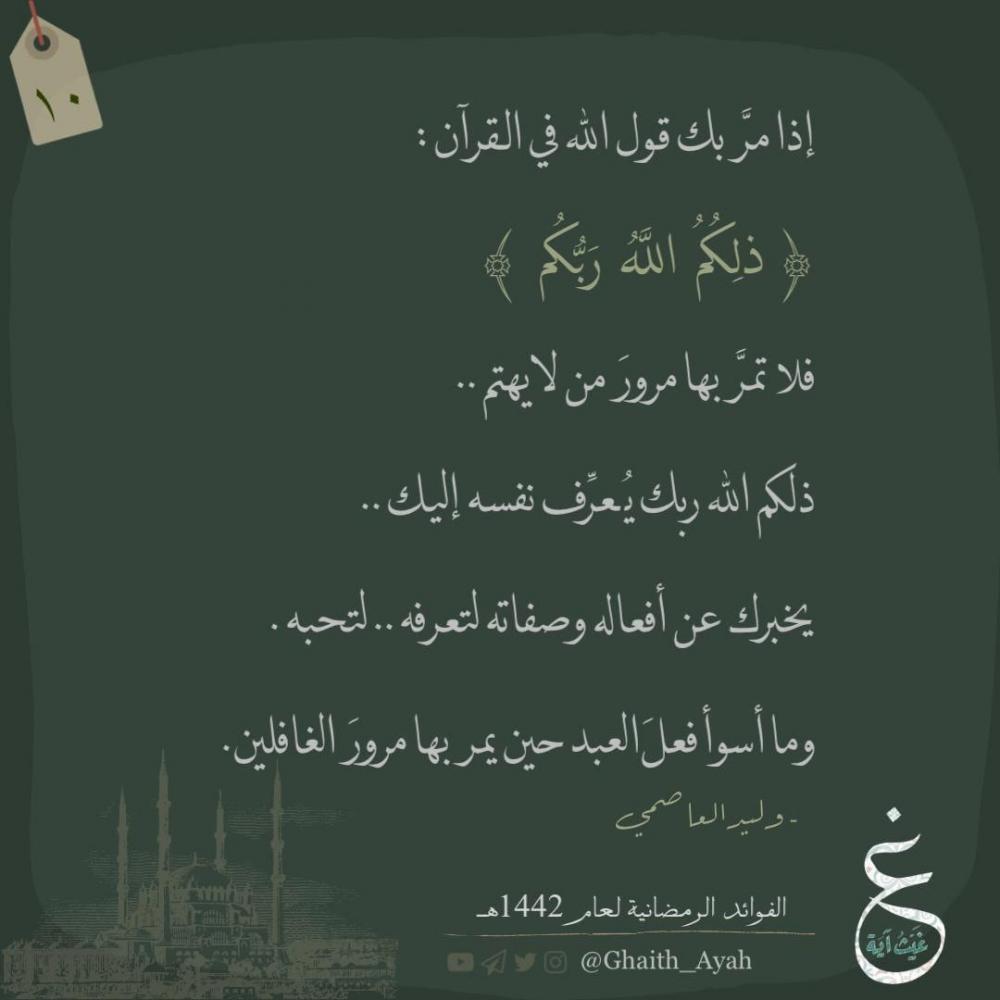 ١٠
إذا مرَّ بك قول الله في القرآن :
﴿ ذلِكُمُ اللَّهُ رَبُّكُم ﴾
فلا تمرَّ بها مرورَ من لا يهتم ..
ذلكم الله ربك يُعرِّف نفسه إليك ..
يخبرك عن أفعاله وصفاته لتعرفه .. لتحبه .
وما أسوأ فعلَ العبد حين يمر بها مرورَ الغافلين .
- وليد العاصمي
الفوائد الرمضانية لعام 1442هـ
@Ghaith_Ayah
غ
غَيْثُ آيَة